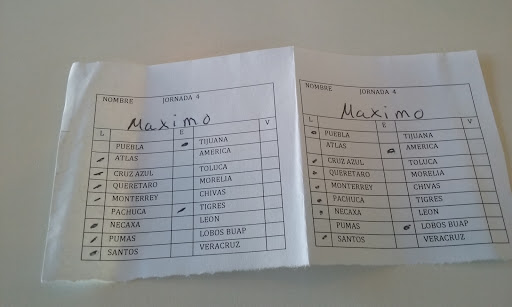 NOMBRE JORNADA 4
Maximo
L E V
PUEBLA TIJUANA
ATLAS AMERICA
CRUZ AZUL TOLUCA
QUERETARO MORELIA
MONTERREY CHIVAS
PACHUCA TIGRES
NECAXA LEON
PUMAS LOBOS BUAP
SANTOS VERACRUZ
NOMBRE JORNADA 4
Maximo
L E V
PUEBLA TIJUANA
ATLAS AMERICA
CRUZ AZUL TOLUCA
QUERETARO MORELIA
MONTERREY CHIVAS
PACHUCA TIGRES
NECAXA LEON
PUMAS LOBOS BUAP
SANTOS VERACRUZ